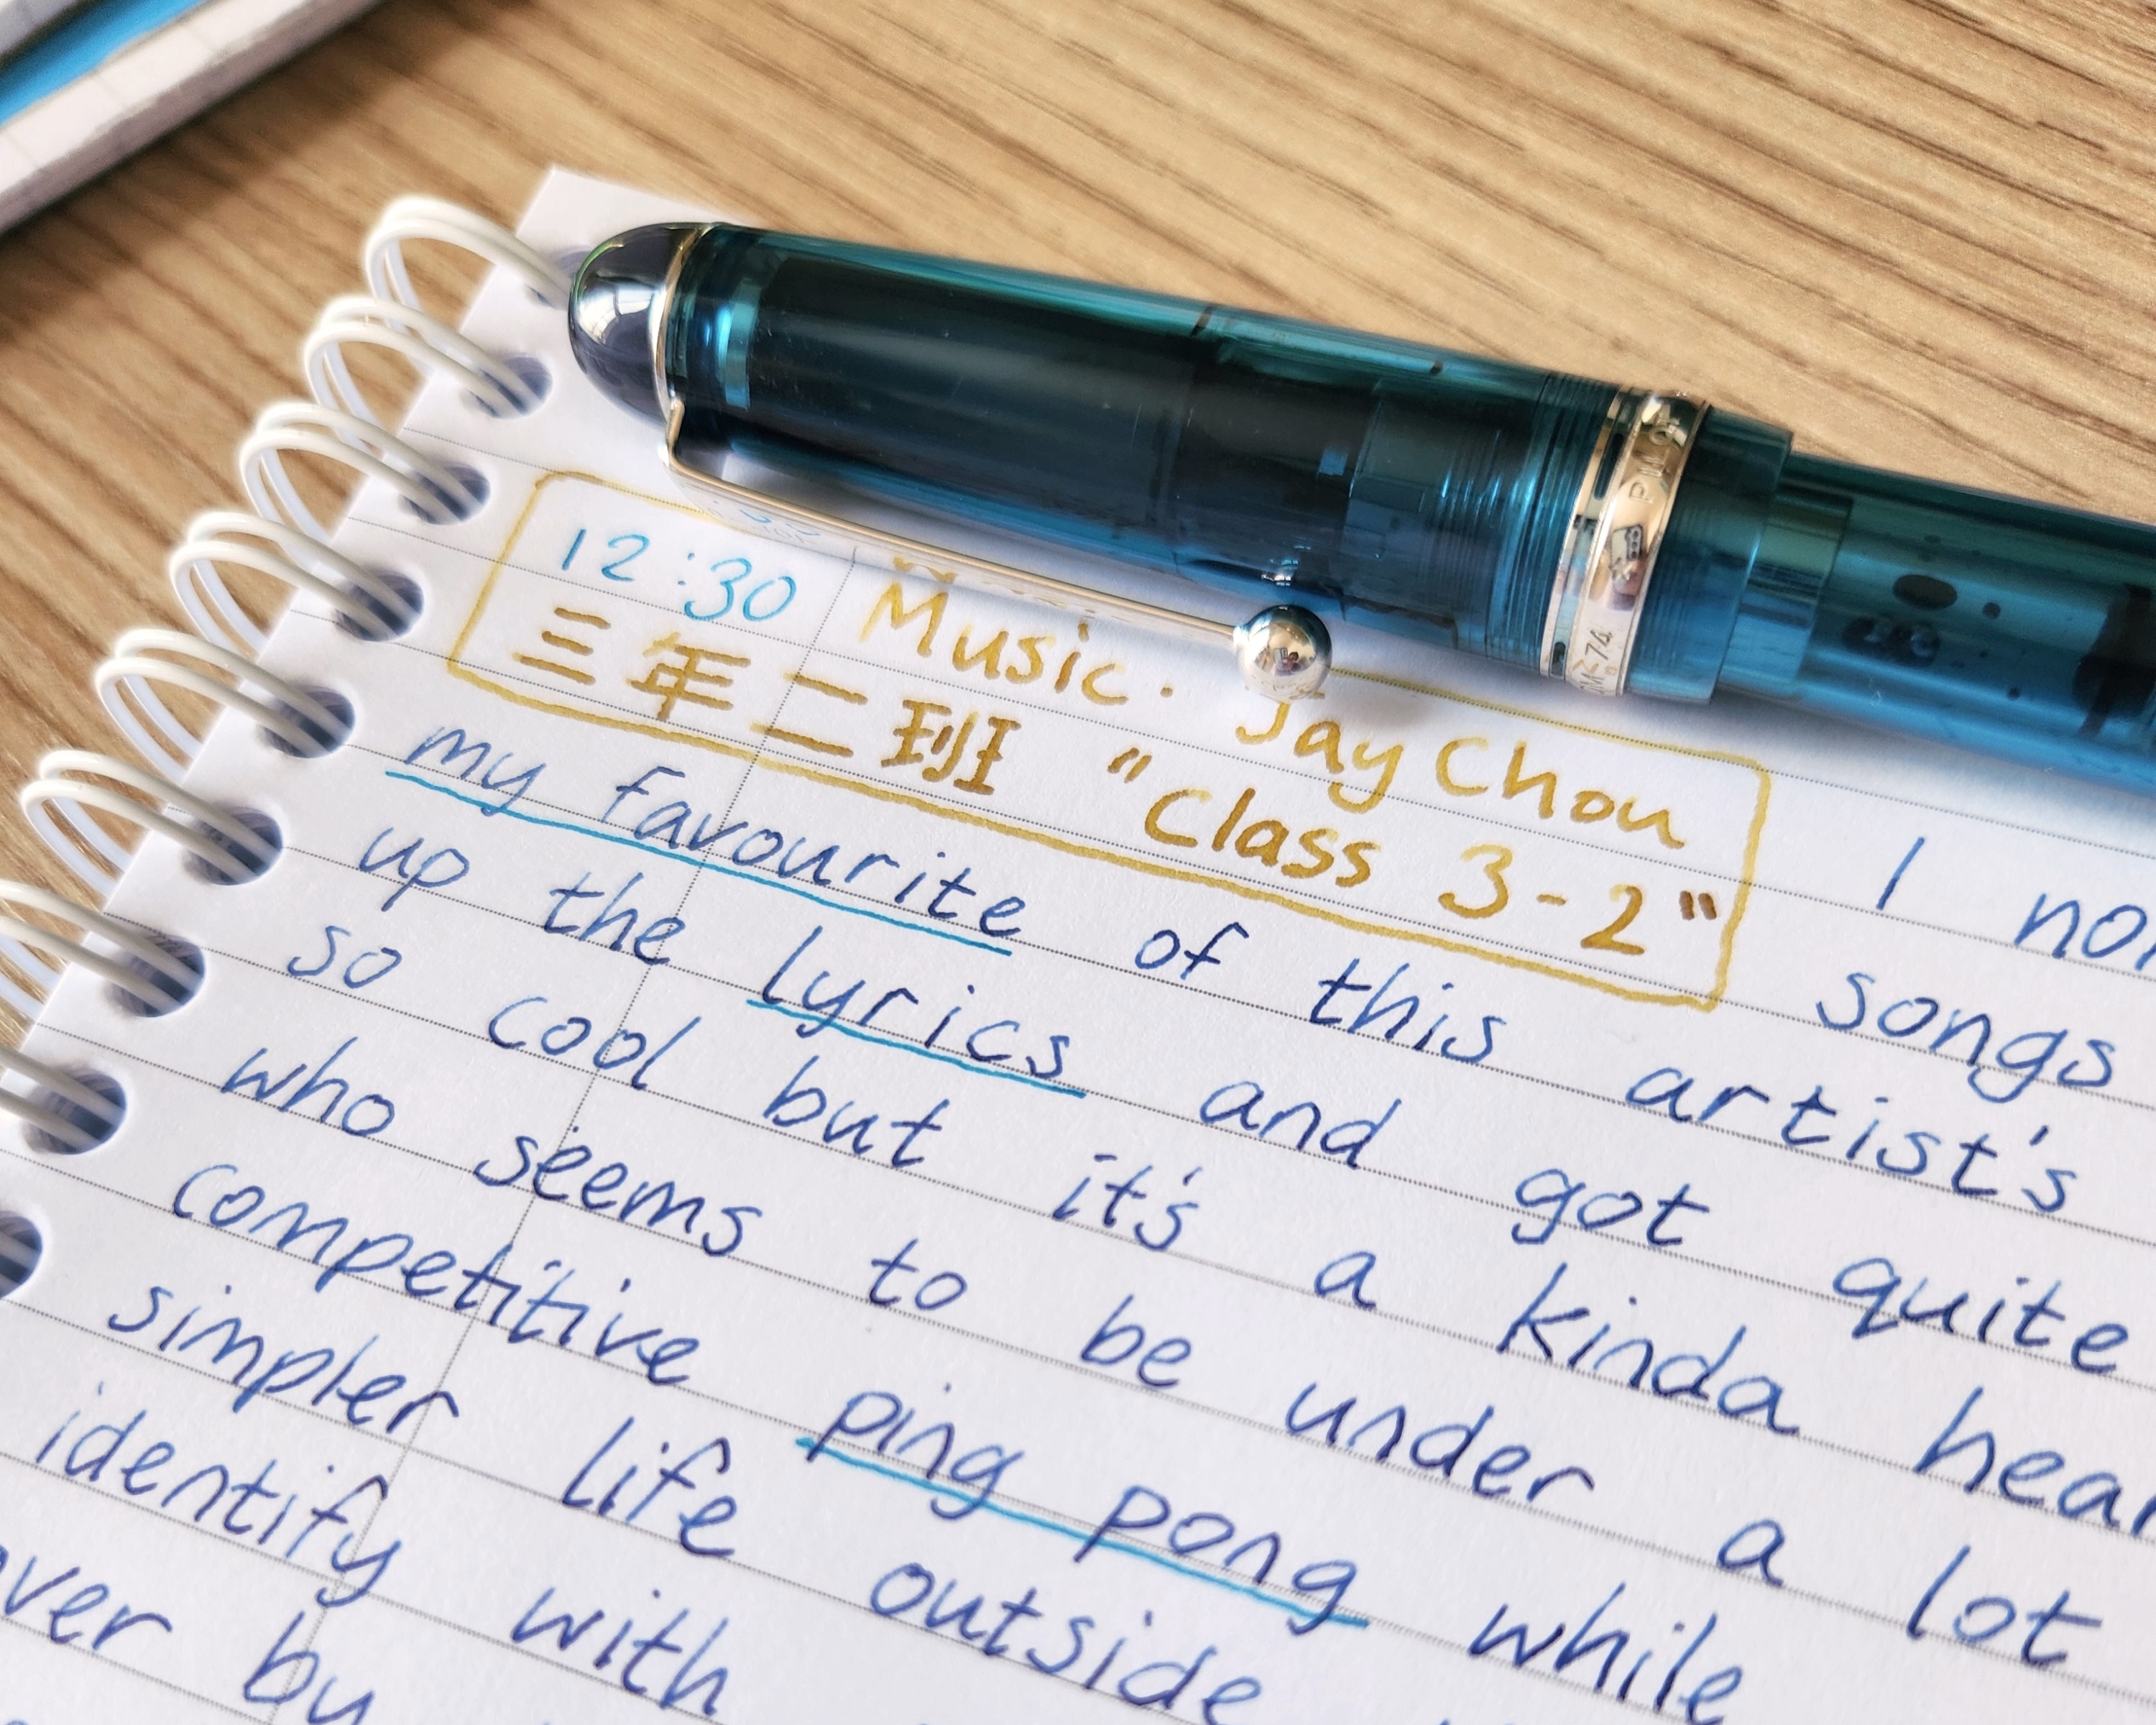 12:30 Music. Jay Chou I
三年二班 "Class 3-2" songs
my favourite of this artist's
up the lyrics and got quite
so cool but it's a kinda
who seems to be under a lot
competitive ping pong while
simpler life outside
identify with
by